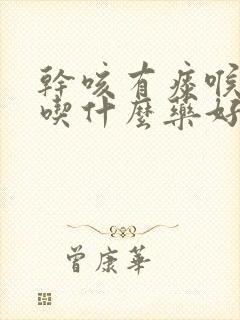 幹咳有痰喉
喫什麼藥好
曾康華